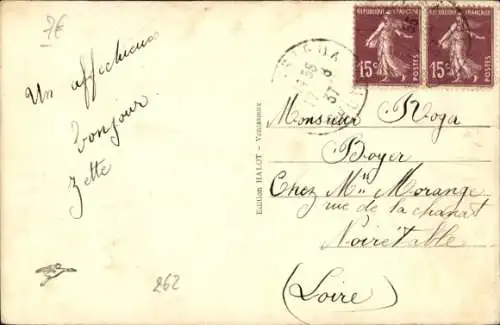 7€
Un affectueux
bonjour
Zette
262
Edition HALOT - Venissieux
REPUBLIQUE FRANÇAISE
15c POSTES
REPUBLIQUE FRANÇAISE
15c POSTES
37
Monsieur Roga
Boyer
Chez Mme Morange
rue de la chanat
Noirétable
(Loire)